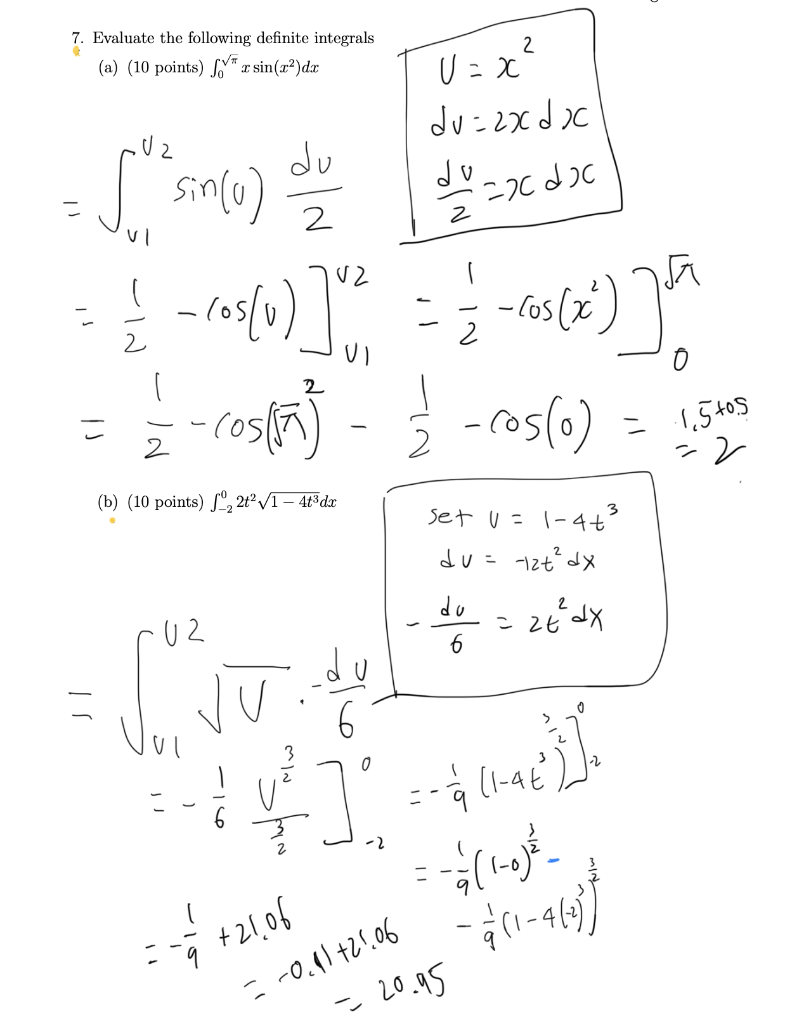 7. Evaluate the following definite integrals
(a) (10 points) ∫₀^√π x sin(x²)dx
U = x²
du = 2x dx
du/2 = x dx
= ∫_U1^U2 sin(u) du/2
= 1/2 - cos(u) ]_U1^U2 = 1/2 - cos(x²) ]_0^√π
= 1/2 - cos(√π)² - 1/2 - cos(0) = 1.5+0.5
= 2
(b) (10 points) ∫₋₂⁰ 2t²√(1 − 4t³)dx
set u = 1-4t³
du = -12t² dx
- du/6 = 2t² dx
= ∫_U1^U2 √U · -du/6
= - 1/6 U^(3/2) / (3/2) ]_-2^0 = - 1/9 (1-4t³)^(3/2) ]_-2^0
= - 1/9 (1-0)^(3/2) -
- 1/9 (1-4(-2)³)^(3/2)
= - 1/9 + 21.06
= -0.11 + 21.06
= 20.95